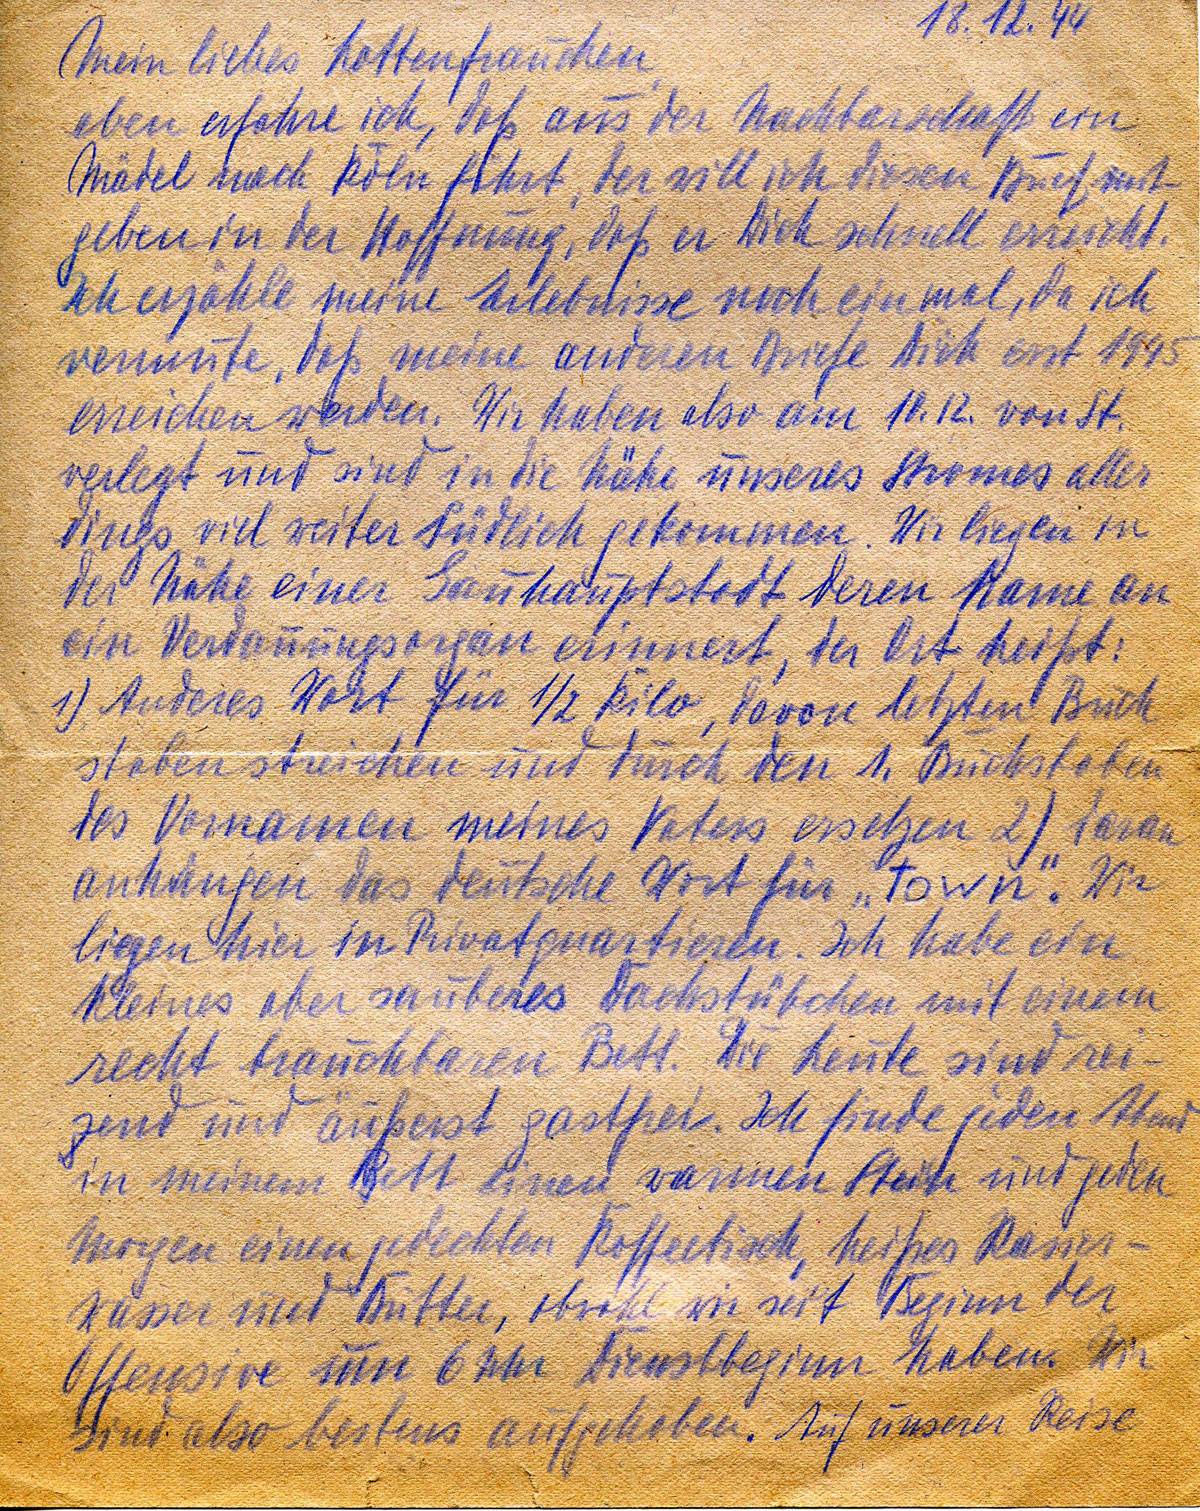 18.12.44
Mein liebes Lottenfrauchen,
eben erfahre ich, daß aus der Nachbarschaft ein
Mädel nach Köln fährt, der will ich diesen Brief mit-
geben in der Hoffnung, daß er Dich schnell erreicht.
Ich erzähle meine Erlebnisse noch einmal, da ich
vermute, daß meine anderen Briefe Dich erst 1945
erreichen werden. Wir haben also am 10.12. von St.
verlegt und sind in die Nähe unseres Stromes aller
dings viel weiter südlich gekommen. Wir liegen in
der Nähe einer Gauhauptstadt deren Name an
ein Verdauungsorgan erinnert, der Ort heißt:
1) Anderes Wort für 1/2 Kilo, davon letzten Buch
staben streichen und durch den 1. Buchstaben
des Vornamen meines Vaters ersetzen 2) daran
anhängen das deutsche Wort für „Town". Wir
liegen hier in Privatquartieren. Ich habe ein
kleines aber sauberes Dachstübchen mit einem
recht brauchbaren Bett. Die Leute sind rei-
zend und äußerst gastfrei. Ich finde jeden Abend
in meinem Bett einen warmen Stein und jeden
Morgen einen gedeckten Kaffeetisch, heißes Rasier-
wasser und Butter, obwohl wir seit Beginn der
Offensive um 6 Uhr Dienstbeginn haben. Wir
sind also bestens aufgehoben. Auf unserer Reise